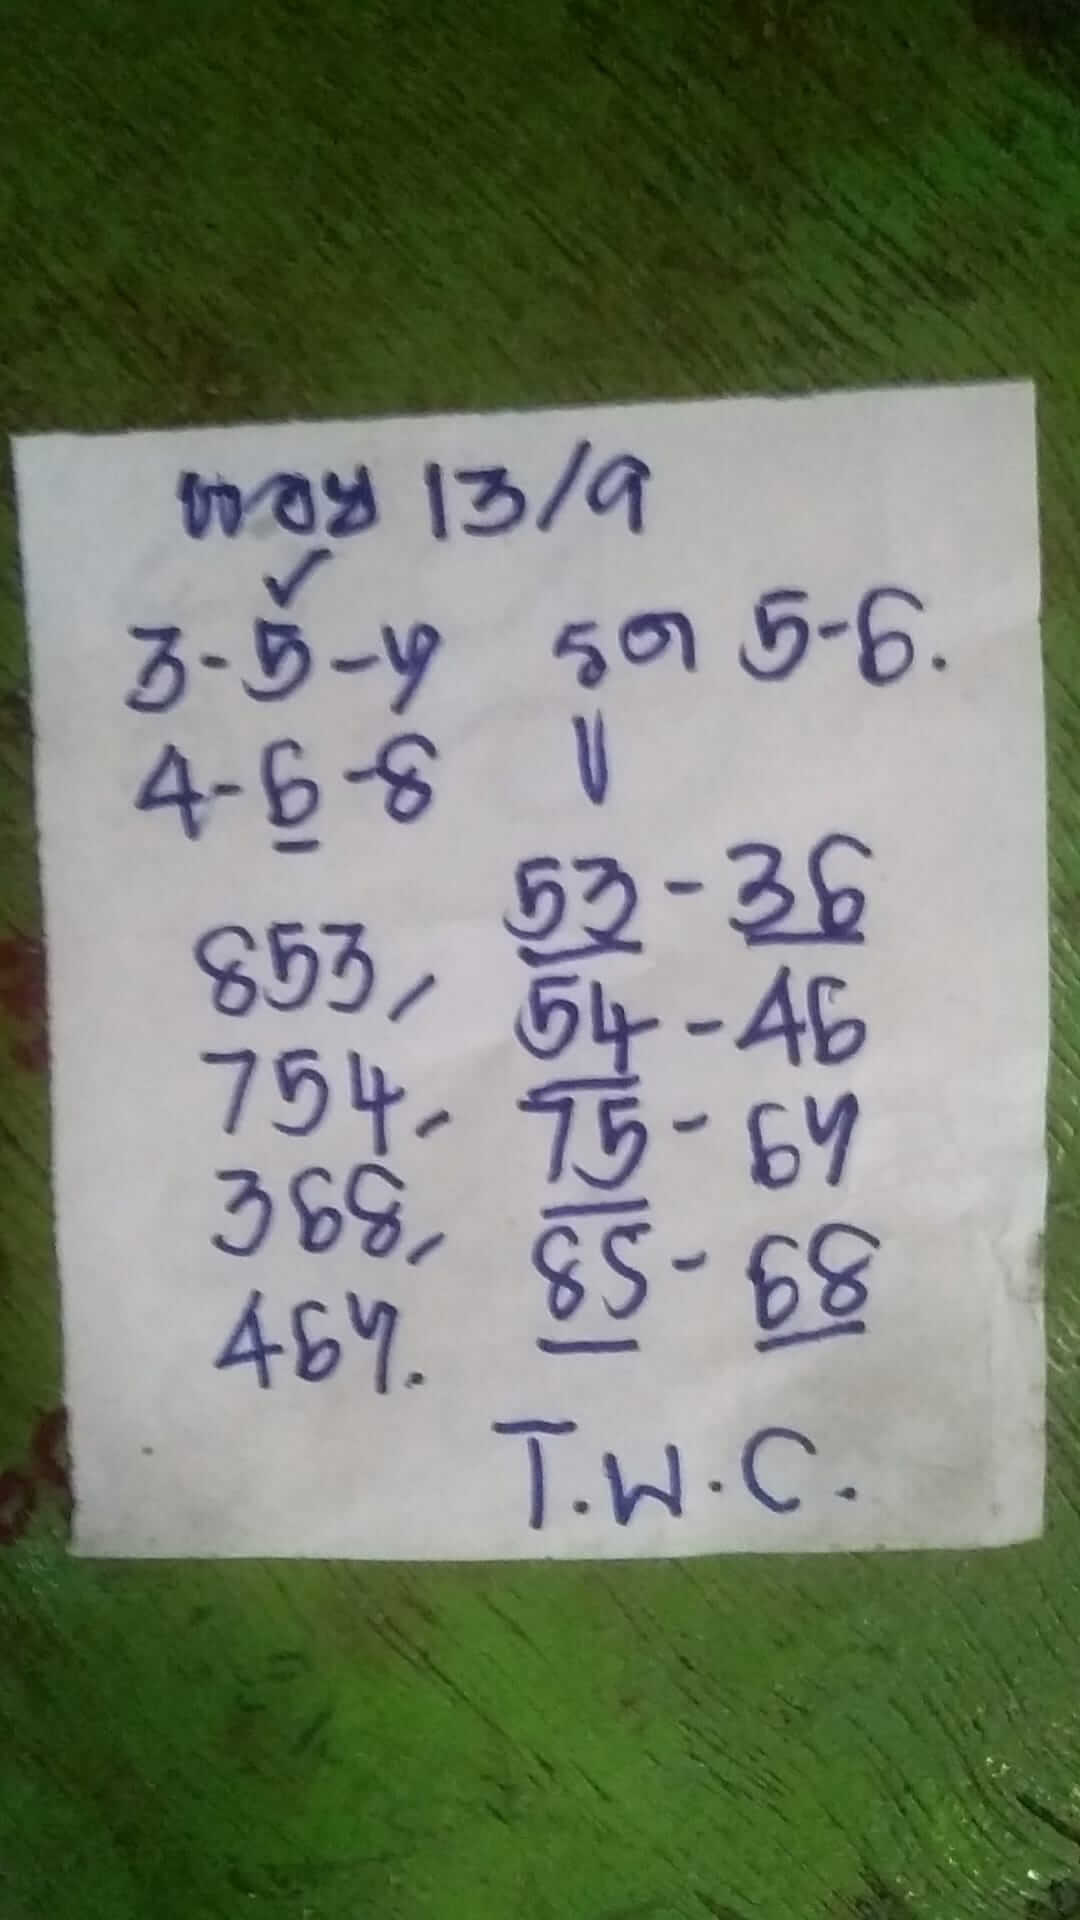 หวย 13/9
3-5-7 รูด 5-6.
4-6-8
53-36
853, 54-46
754, 75-67
368, 85-68
467.
T.W.C.